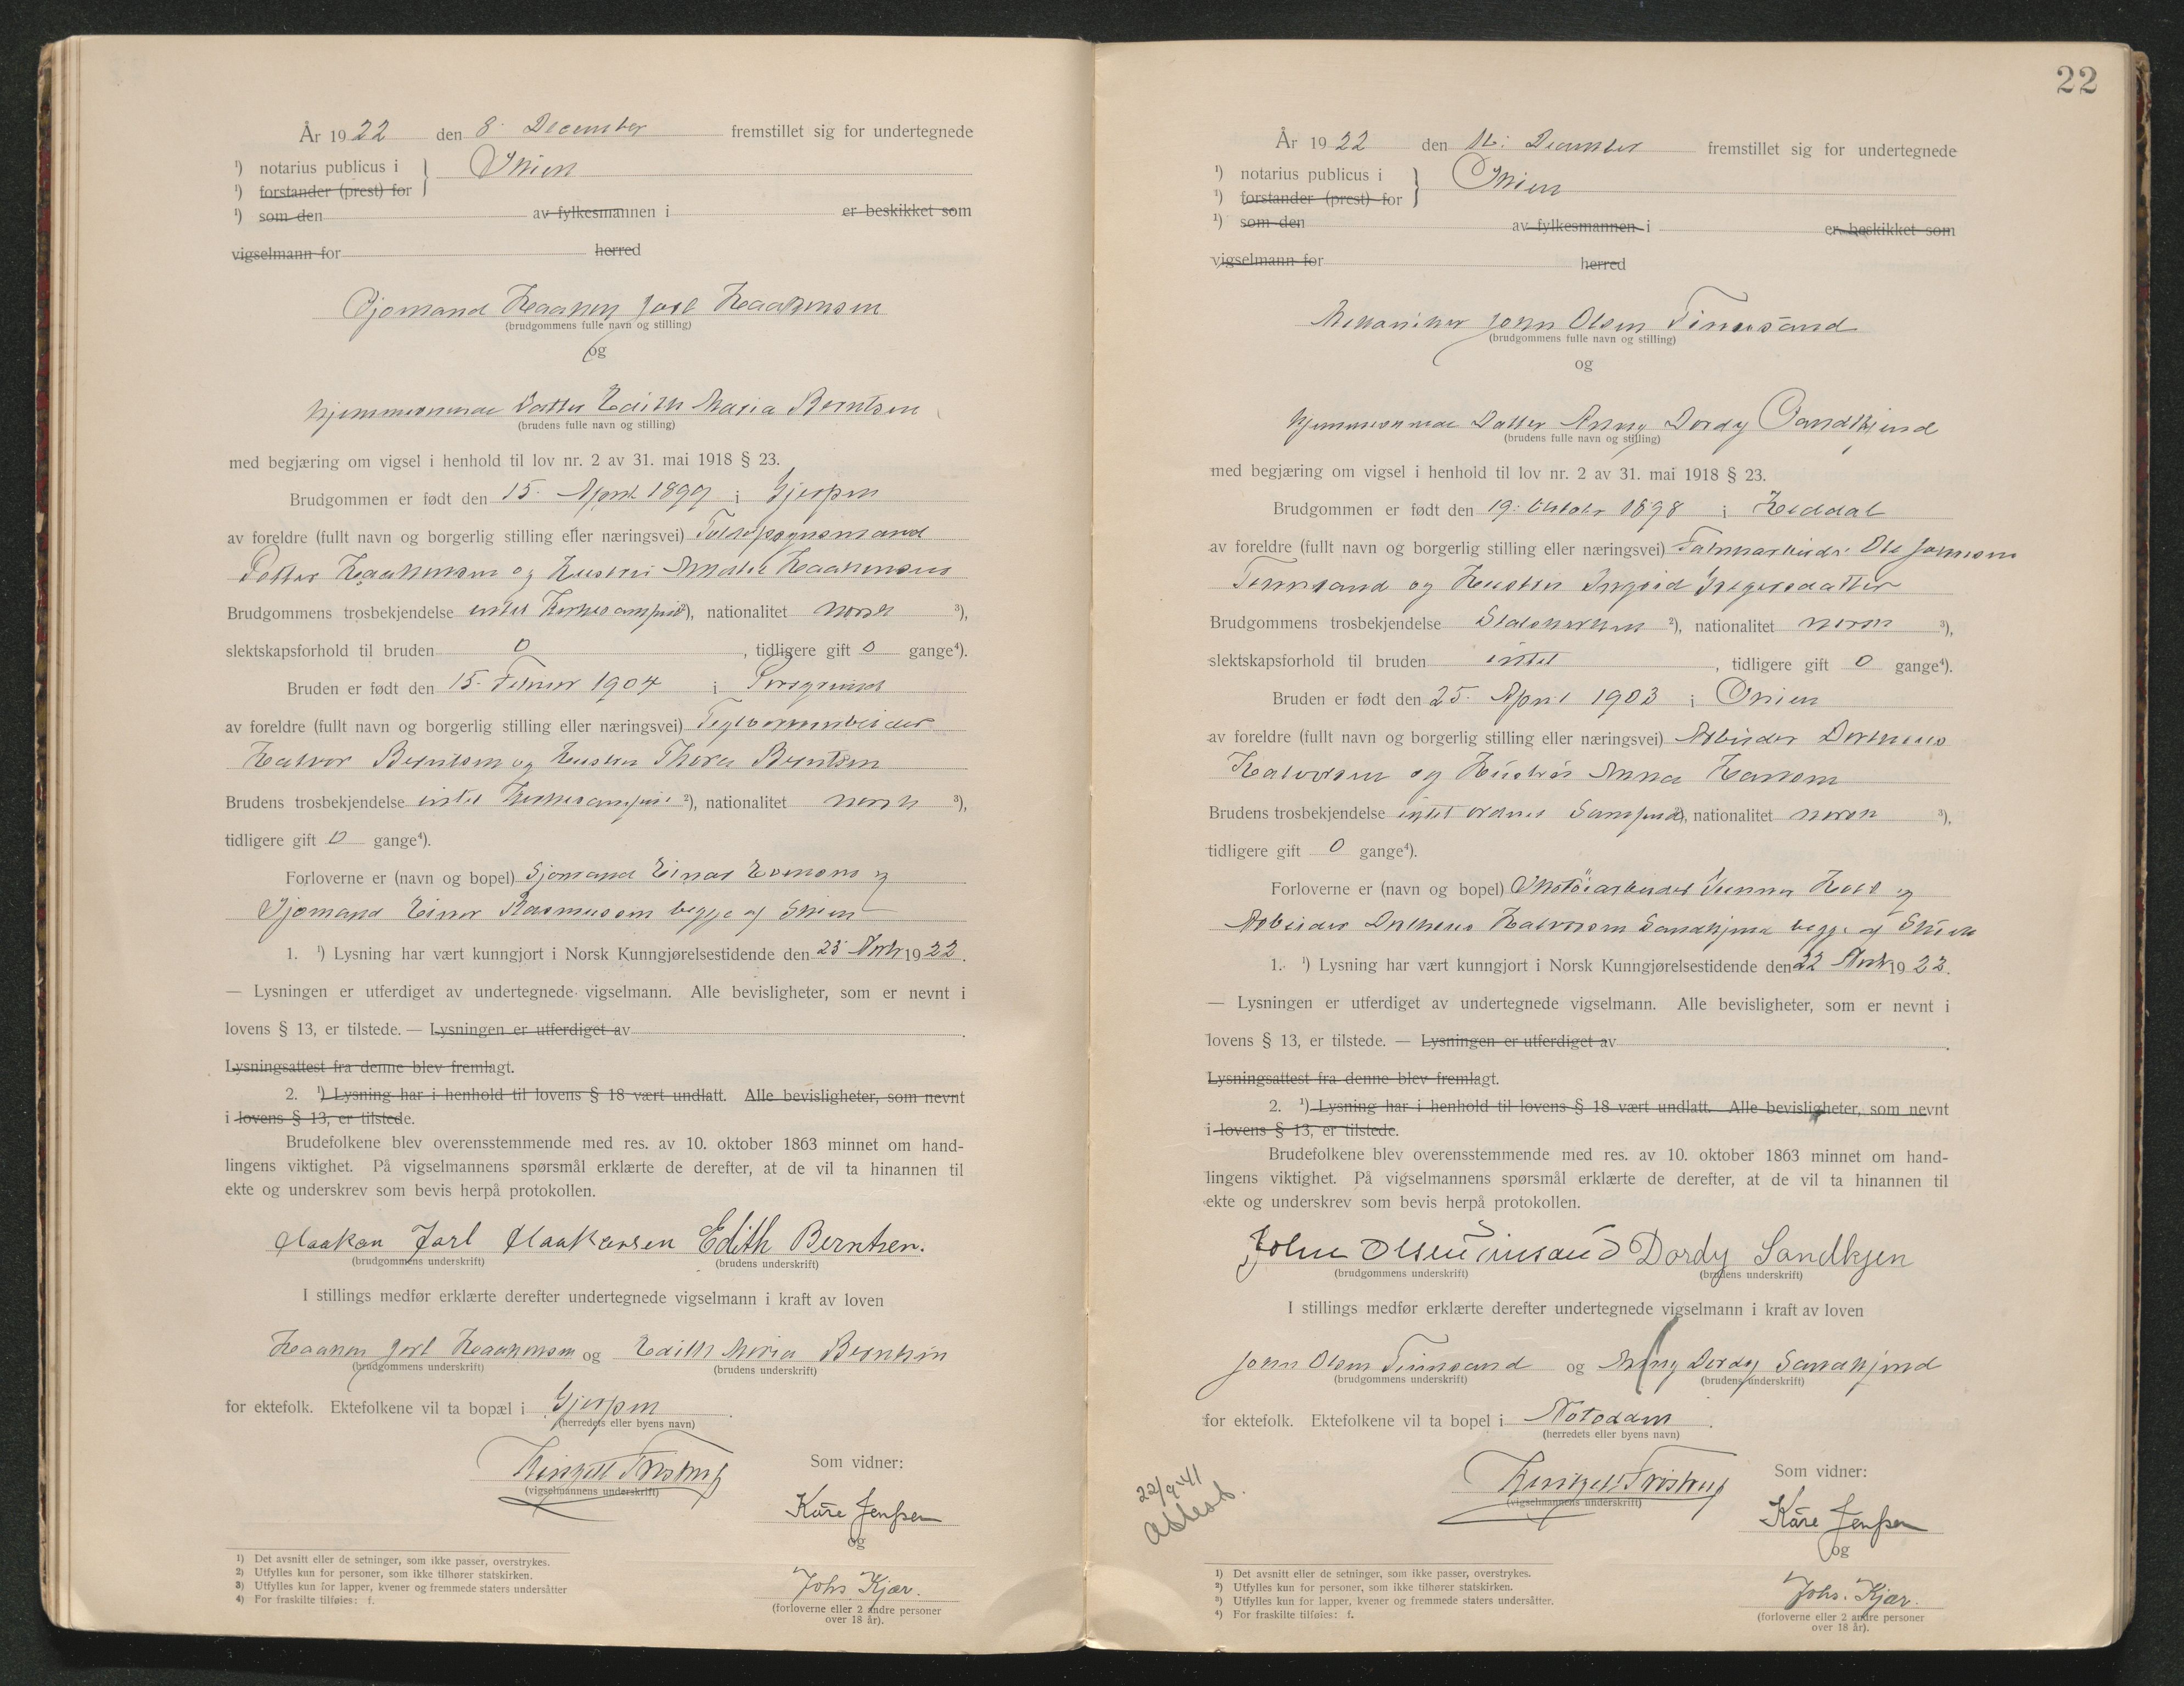 År 1922 den 8. December fremstillet sig for undertegnede
¹) notarius publicus i } Skien
¹) forstander (prest) for
¹) som den av fylkesmannen i er beskikket som
vigselmann for herred
Sjømand Haakon Jarl Haakonsen
(brudgommens fulle navn og stilling)
og
hjemmeværende Datter Edith Maria Berntsen
(brudens fulle navn og stilling)
med begjæring om vigsel i henhold til lov nr. 2 av 31. mai 1918 § 23.
Brudgommen er født den 15. April 1899 i Gjerpen
av foreldre (fullt navn og borgerlig stilling eller næringsvei)
Petter Haakonsen og Hustru Amalie Haakonsen
Brudgommens trosbekjendelse intet Kirkesamfund ²), nationalitet norsk ³),
slektskapsforhold til bruden 0, tidligere gift 0 gange⁴).
Bruden er født den 15. Februar 1904 i Porsgrund
av foreldre (fullt navn og borgerlig stilling eller næringsvei) Teglverksarbeider
Halvor Berntsen og Hustru Thora Berntsen
Brudens trosbekjendelse intet Kirkesamfund ²), nationalitet norsk ³),
tidligere gift 0 gange⁴).
Forloverne er (navn og bopel) Sjømand Einar Evensen og
Sjømand Einar Rasmussen begge af Skien
1. ¹) Lysning har vært kunngjort i Norsk Kunngjørelsestidende den 23 Novbr 1922.
— Lysningen er utferdiget av undertegnede vigselmann. Alle bevisligheter, som er nevnt i
lovens § 13, er tilstede. — Lysningen er utferdiget av
Lysningsattest fra denne blev fremlagt.
2. ¹) Lysning har i henhold til lovens § 18 vært undlatt. Alle bevisligheter, som nevnt
i lovens § 13, er tilstede.
Brudefolkene blev overensstemmende med res. av 10. oktober 1863 minnet om hand-
lingens viktighet. På vigselmannens spørsmål erklærte de derefter, at de vil ta hinannen til
ekte og underskrev som bevis herpå protokollen.
Haakon Jarl Haakonsen Edith Berntsen.
(brudgommens underskrift) (brudens underskrift)
I stillings medfør erklærte derefter undertegnede vigselmann i kraft av loven
Haakon Jarl Haakonsen og Edith Maria Berntsen
(brudgommens underskrift) (brudens underskrift)
for ektefolk. Ektefolkene vil ta bopæl i Gjerpen.
(herredets eller byens navn)
(vigselmannens underskrift)
Som vidner:
Kåre Jenssen
og
Johs. Kjær.
(forloverne eller 2 andre personer
over 18 år).
¹) Det avsnitt eller de setninger, som ikke passer, overstrykes.
²) Utfylles kun for personer, som ikke tilhører statskirken.
³) Utfylles kun for lapper, kvener og fremmede staters undersåtter
⁴) For fraskilte tilføies: f.
22
År 1922 den 16. December fremstillet sig for undertegnede
¹) notarius publicus i } Skien
¹) forstander (prest) for
¹) som den av fylkesmannen i er beskikket som
vigselmann for herred
Mekaniker John Olsen Tinnesand
(brudgommens fulle navn og stilling)
og
hjemmeværende Datter Anny Dordy Sandkjend
(brudens fulle navn og stilling)
med begjæring om vigsel i henhold til lov nr. 2 av 31. mai 1918 § 23.
Brudgommen er født den 19. Oktobr 1898 i Heddal
av foreldre (fullt navn og borgerlig stilling eller næringsvei) Ole Johnsen
Tinnesand og Hustru Ingrid
Brudgommens trosbekjendelse Statskirken ²), nationalitet norsk ³),
slektskapsforhold til bruden intet, tidligere gift 0 gange⁴).
Bruden er født den 25. April 1903 i Skien
av foreldre (fullt navn og borgerlig stilling eller næringsvei) Arbeider Dortheus
Halvorsen og Hustru Anna Hansen
Brudens trosbekjendelse intet ordnet Samfund ²), nationalitet norsk ³),
tidligere gift 0 gange⁴).
Forloverne er (navn og bopel) Skotøiarbeider Gunnar og
Arbeider Dortheus Halvorsen Sandkjend begge af Skien
1. ¹) Lysning har vært kunngjort i Norsk Kunngjørelsestidende den 22 Novbr 1922.
— Lysningen er utferdiget av undertegnede vigselmann. Alle bevisligheter, som er nevnt i
lovens § 13, er tilstede. — Lysningen er utferdiget av
Lysningsattest fra denne blev fremlagt.
2. ¹) Lysning har i henhold til lovens § 18 vært undlatt. Alle bevisligheter, som nevnt
i lovens § 13, er tilstede.
Brudefolkene blev overensstemmende med res. av 10. oktober 1863 minnet om hand-
lingens viktighet. På vigselmannens spørsmål erklærte de derefter, at de vil ta hinannen til
ekte og underskrev som bevis herpå protokollen.
John Olsen Tinsand Dordy Sandkjen
(brudgommens underskrift) (brudens underskrift)
I stillings medfør erklærte derefter undertegnede vigselmann i kraft av loven
John Olsen Tinnesand og Anny Dordy Sandkjend
(brudgommens underskrift) (brudens underskrift)
for ektefolk. Ektefolkene vil ta bopel i Notodden.
(herredets eller byens navn)
22/9 41
attest.
(vigselmannens underskrift)
Som vidner:
Kåre Jenssen
og
Johs. Kjær.
(forloverne eller 2 andre personer
over 18 år).
¹) Det avsnitt eller de setninger, som ikke passer, overstrykes.
²) Utfylles kun for personer, som ikke tilhører statskirken.
³) Utfylles kun for lapper, kvener og fremmede staters undersåtter.
⁴) For fraskilte tilføies: f.